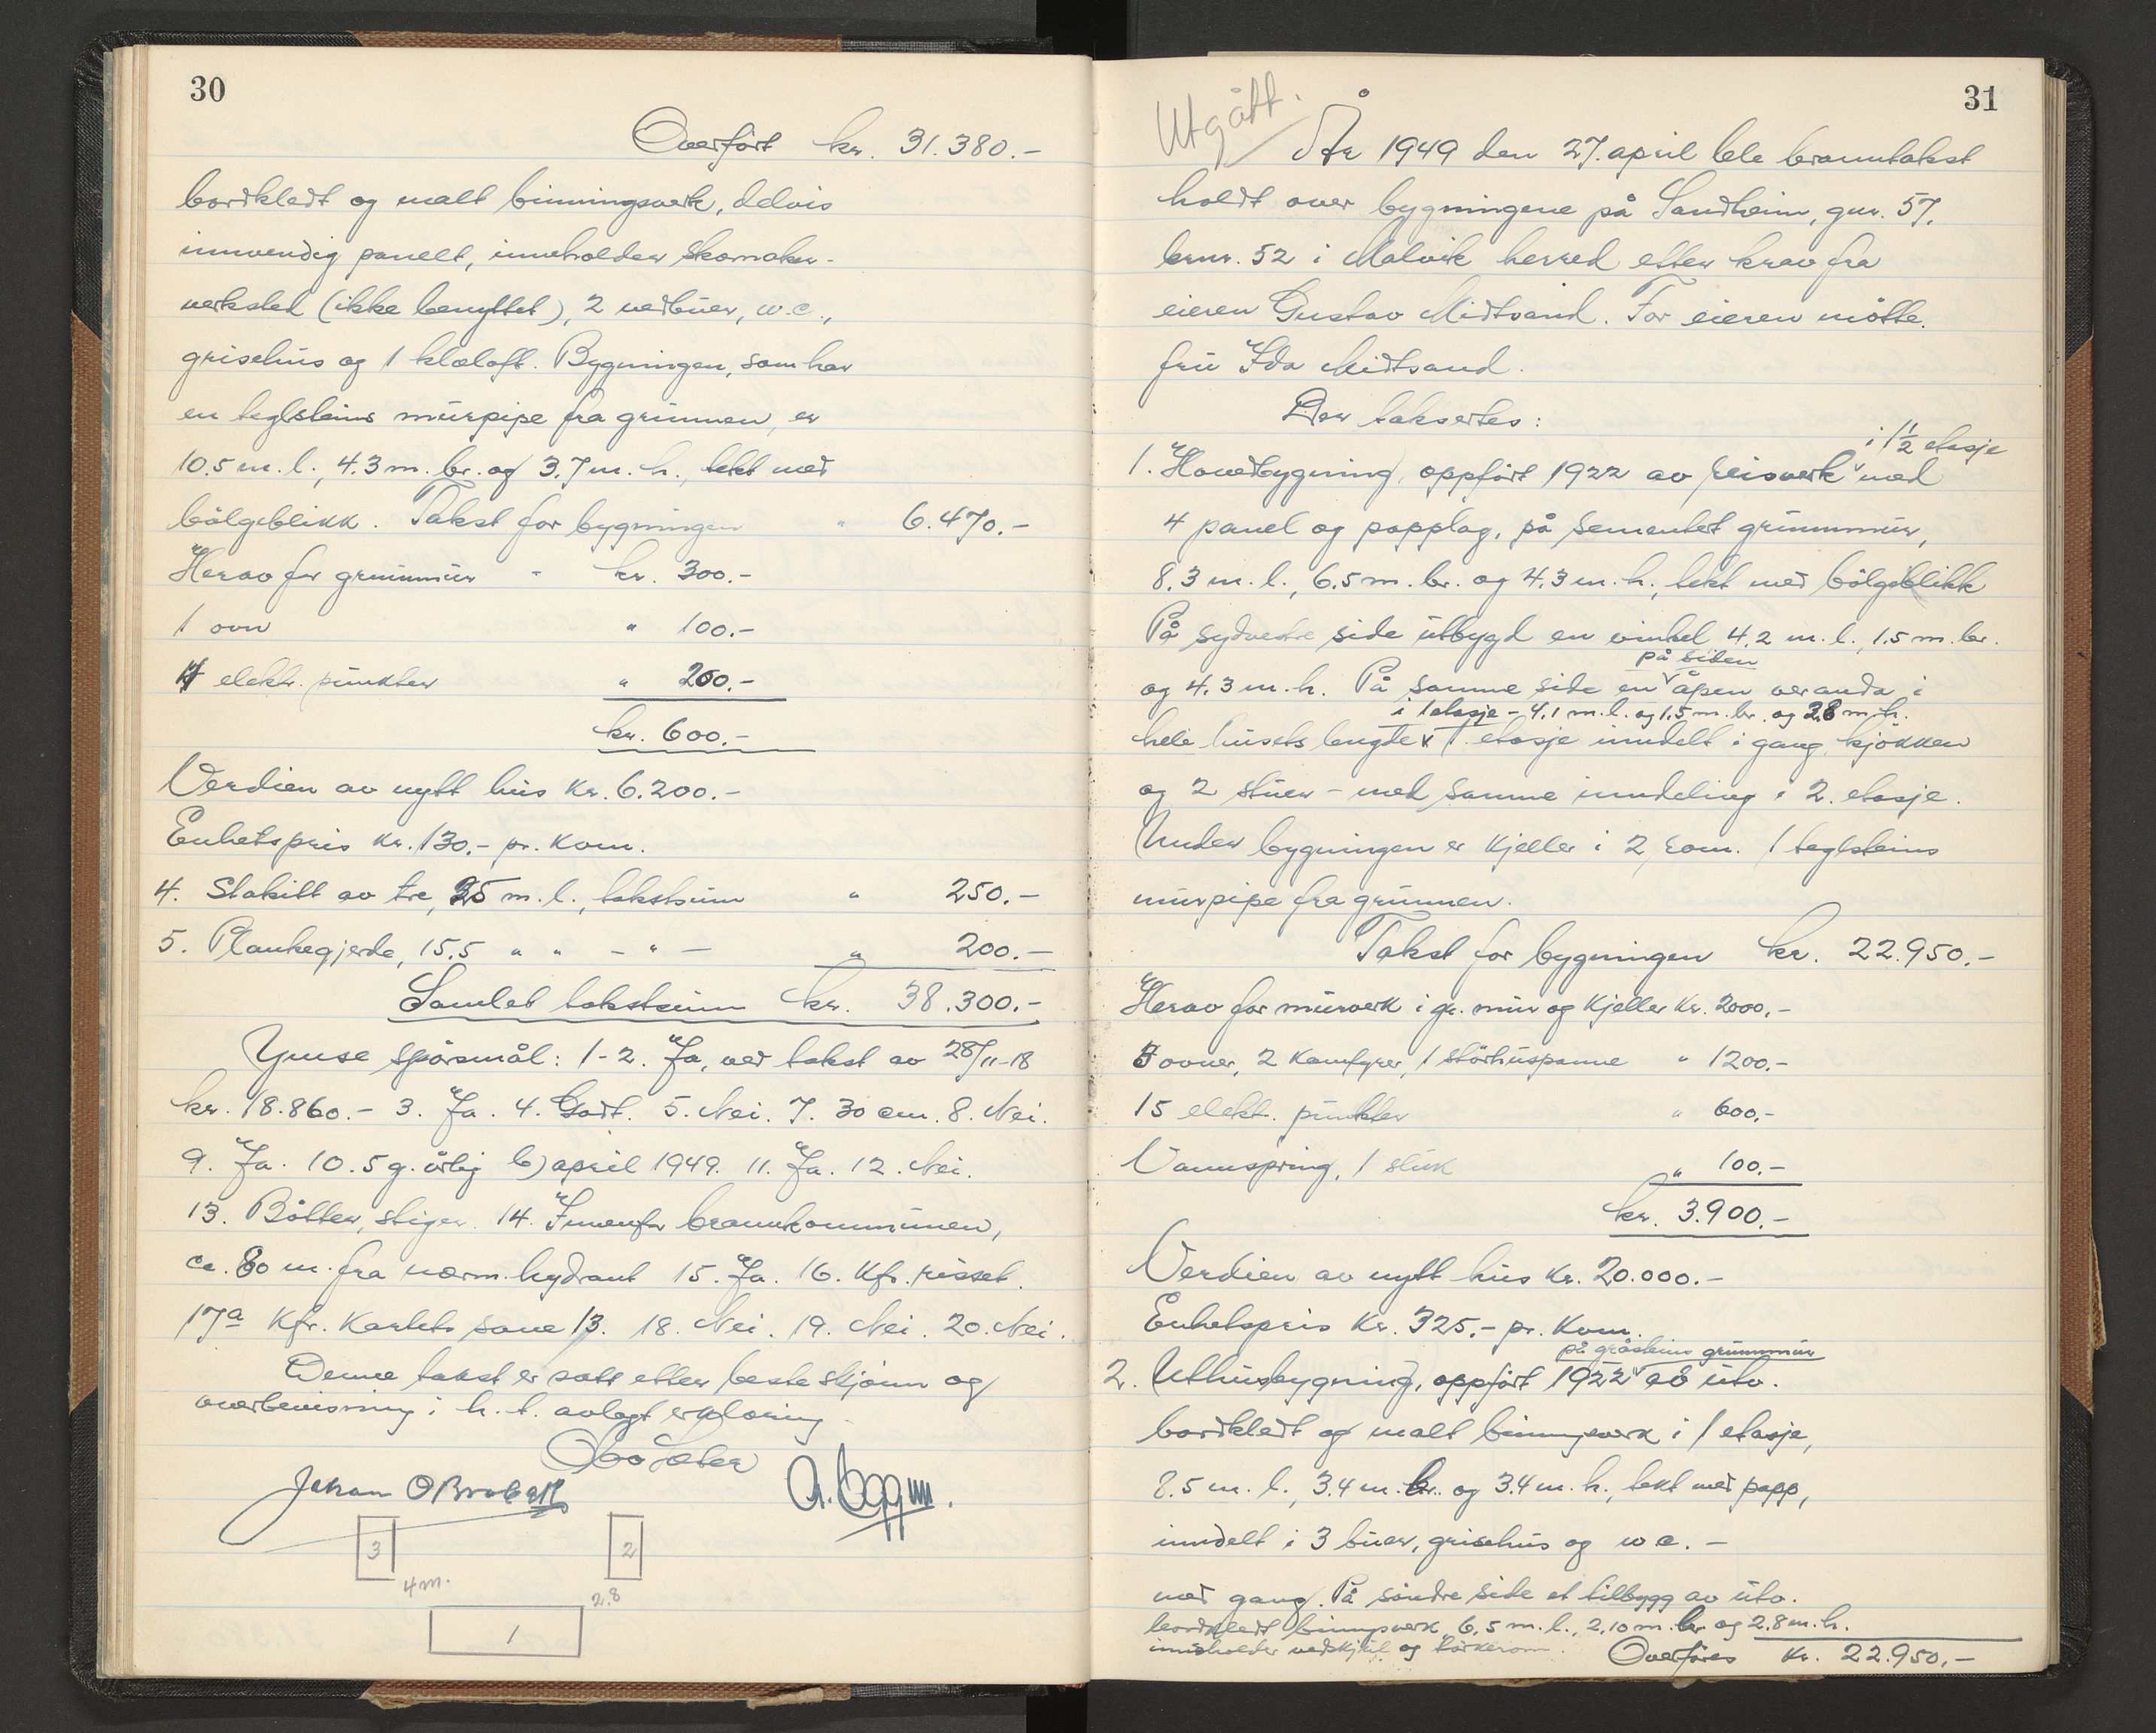 30
Overført kr. 31.380.-
bordkledt og malt binningsverk, delvis
innvendig panelt, inneholder skomaker-
verksted (ikke benyttet), 2 vedbuer, w.c.,
grisehus og 1 kleloft. Bygningen, som har
en teglsteins murpipe fra grunnen, er
10.5 m. l., 4.3 m. br. og 3.7 m. h., tekt med
bølgeblikk. Takst for bygningen " 6.470.-
Herav for grunnmur - kr. 300.-
1 ovn " 100.-
elektr. punkter " 200.-
kr. 600.-
Verdien av nytt hus kr. 6.200.-
Enhetspris kr. 130.- pr. kvm.
4. Stakitt av tre, 35 m. l., takstsum " 250.-
5. Plankegjerde, 15.5 " " - " - " 200.-
Samlet takstsum kr. 38.300.-
Ymse spørsmål: 1-2. Ja, ved takst av 28/11-18
kr. 18.860.- 3. Ja. 4. Godt. 5. Nei. 7. 30 cm. 8. Nei.
9. Ja. 10. 5 g. årlig b) april 1949. 11. Ja. 12. Nei.
13. Bøtter, stiger. 14. Innenfor brannkommunen,
ca. 80 m. fra nærm. hydrant 15. Ja. 16. Kfr. risset.
17a Kfr. kartets sone 13. 18. Nei. 19. Nei. 20. Nei.
Denne takst er satt etter beste skjønn og
overbevisning i h. t. avlagt erklæring.
Johan O
A. Eggen.
3
2
4 m.
2.8
1
31
Utgått.
År 1949 den 27. april ble branntakst
holdt over bygningene på Sandheim, gnr. 57,
brnr. 52 i Malvik herred etter krav fra
eieren Gustav Midtsand. For eieren møtte
fru Ida Midtsand.
Der taksertes:
i 1 1/2 etasje
1. Hovedbygning, oppført 1922 av reisverk v med
4 panel og papplag, på sementet grunnmur,
8.3 m. l., 6.5 m. br. og 4.3 m. h., tekt med bølgeblikk
På sydvestre side utbygd en vinkel 4.2 m. l., 1.5 m. br.
på siden
og 4.3 m. h. På samme side en v åpen veranda i
i 1 etasje - 4.1 m. l. og 1.5 m. br. og 2.8 m. h.
hele husets lengde v 1. etasje inndelt i gang, kjøkken
og 2 stuer - med samme inndeling i 2. etasje.
Under bygningen er kjeller i 2 rom. 1 teglsteins
murpipe fra grunnen.
Takst for bygningen kr. 22.950.-
Herav for murverk i gr. mur og kjeller kr. 2000.-
3 ovner, 2 komfyrer, 1 størhuspanne " 1200.-
15 elekt. punkter " 600.-
Vannspring, 1 sluk " 100.-
kr. 3.900.-
Verdien av nytt hus kr. 20.000.-
Enhetspris kr. 325.- pr. kvm.
på gråsteins grunnmur
2. Uthusbygning, oppført 1922 v av utv.
bordkledt og malt binningsverk i 1 etasje,
8.5 m. l., 3.4 m. br. og 3.4 m. h., tekt med papp,
inndelt i 3 buer, grisehus og w.c. -
med gang. På søndre side et tilbygg av utv.
bordkledt binningsverk 6.5 m. l., 2.10 m. br. og 2.8 m. h.
inneholder vedskjul og tørkerom. Overføres kr. 22.950.-